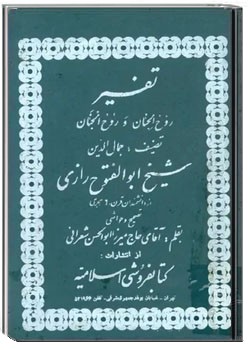 تفسیر
روح الجنان و روح الجنان
تصنیف: جمال الدین
شیخ ابوالفتوح رازی
از دانشمندان قرن ششم هجری
تصحیح و حواشی
بقلم: آقای حاج میرزا ابوالحسن شعرانی
از انتشارات:
کتابفروشی اسلامیه
تهران - خیابان بوذرجمهری شرقی - تلفن